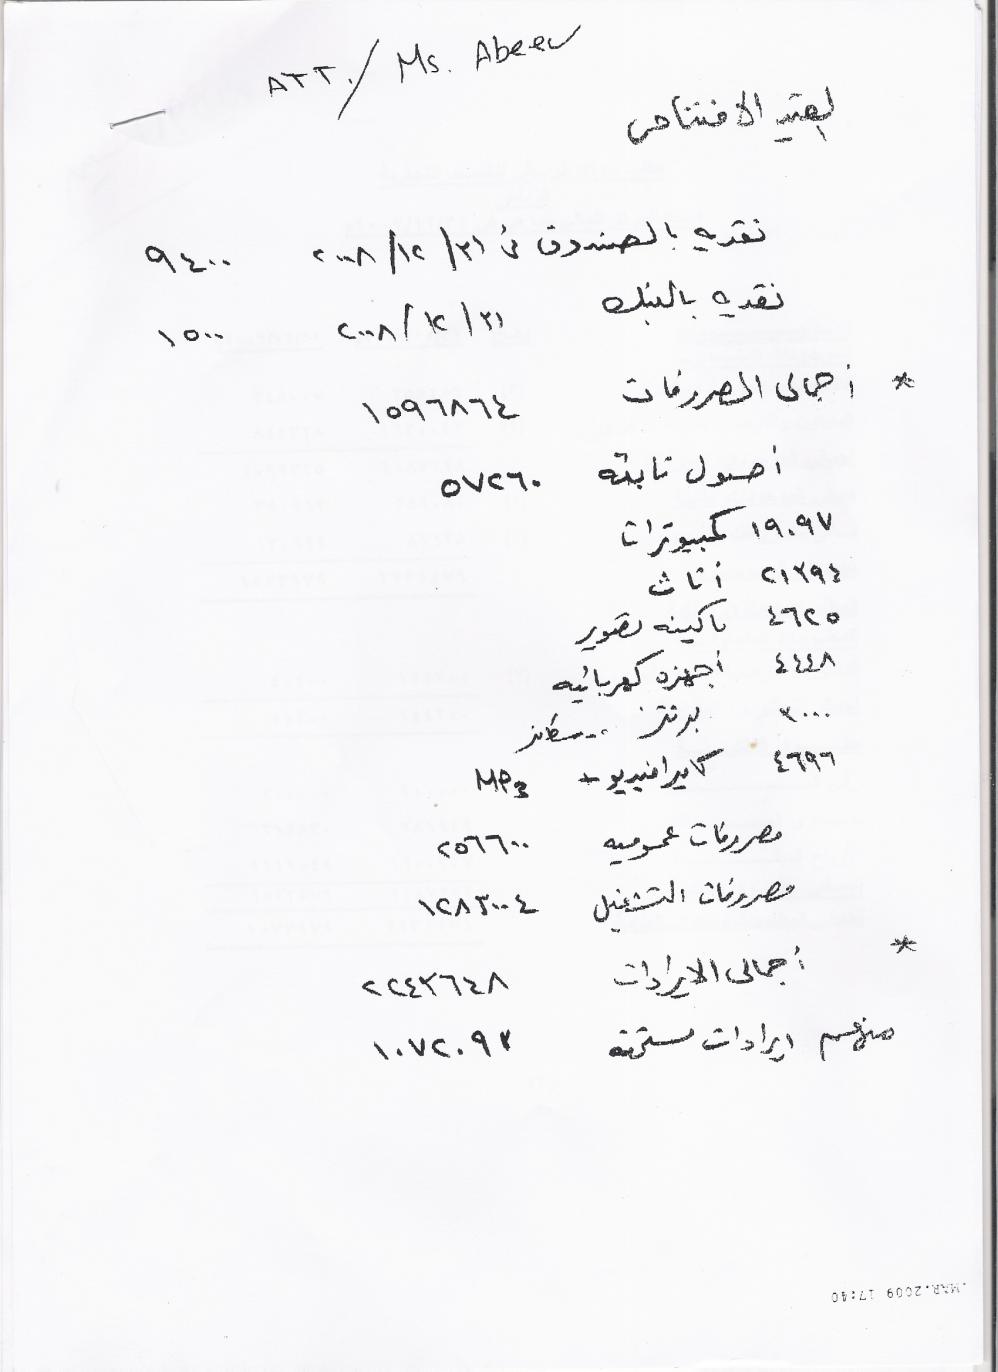 ATT./ Ms. Abeer
القيد الافتتاحي
نقديه بالصندوق في ٣١/١٢/٢٠٠٨ ٩٤٠٠
نقديه بالبنك ٣١/١٢/٢٠٠٨ ١٥٠٠
* أجمالى المصروفات ١٥٩٦٨٦٤
أصول ثابته ٥٧٢٦٠
١٩٠٩٧ كمبيوترات
٢١٣٩٤ أثاث
٤٦٢٥ ماكينه تصوير
٤٤٤٨ أجهزه كهربائيه
٣٠٠٠ برنتر .. سكانر
٤٦٩٦ كاميرا فيديو + MP3
مصروفات عموميه ٢٥٦٦٠٠
مصروفات التشغيل ١٢٨٣٠٠٤
* أجمالى الايرادات ٢٢٤٣٦٤٨
منهم ايرادات مستحقه ١٠٧٢٠٩٣
.MAR.2009 17:40